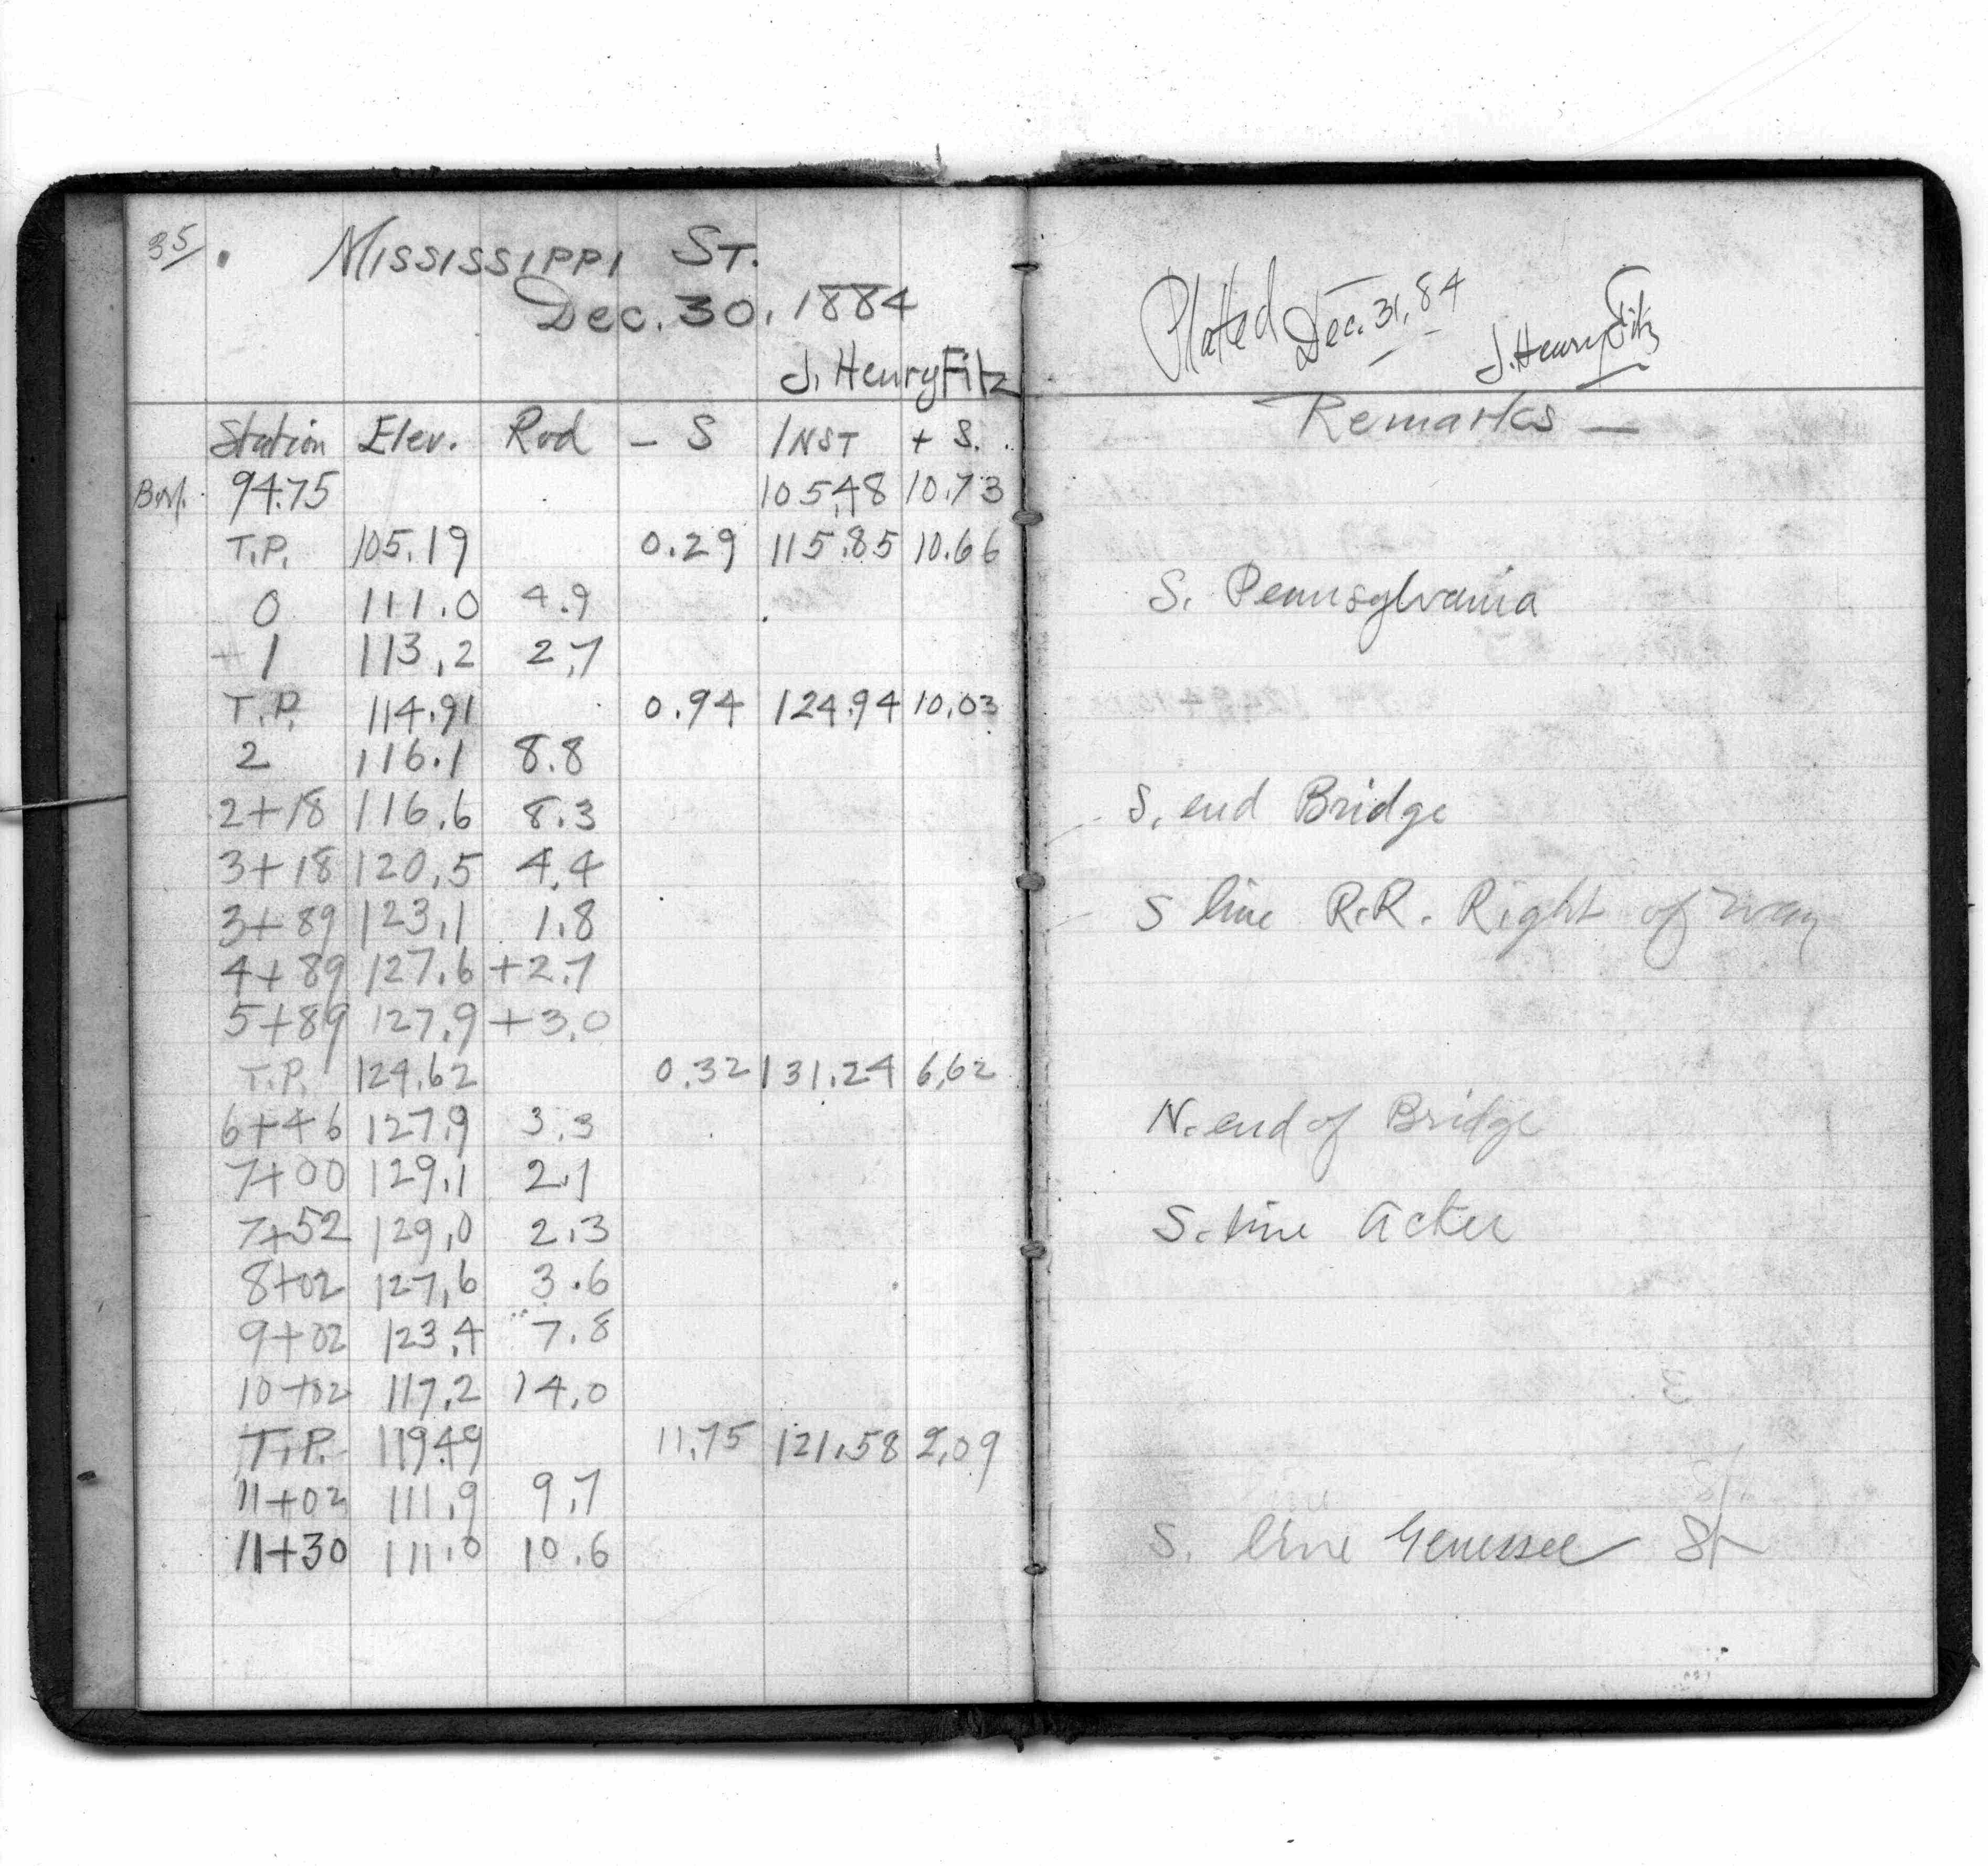 35
Mississippi St.
Dec. 30, 1884
J. Henry Fitz
Platted Dec. 31, 84
J. Henry Fitz
Station Elev. Rod - S Inst + S.
Remarks —
B.M. 94.75 105.48 10.73
T.P. 105.19 0.29 115.85 10.66
0 111.0 4.9 S. Pennsylvania
+ 1 113.2 2.7
T.P. 114.91 0.94 124.94 10.03
2 116.1 8.8
2+18 116.6 8.3 S. end Bridge
3+18 120.5 4.4
3+89 123.1 1.8 S line R.R. Right of way
4+89 127.6 +2.7
5+89 127.9 +3.0
T.P. 124.62 0.32 131.24 6.62
6+46 127.9 3.3 N. end of Bridge
7+00 129.1 2.1
7+52 129.0 2.3 S. line Acker
8+02 127.6 3.6
9+02 123.4 7.8
10+02 117.2 14.0
T.P. 119.49 11.75 121.58 2.09
11+02 111.9 9.7
11+30 111.0 10.6 S. line Genessee St